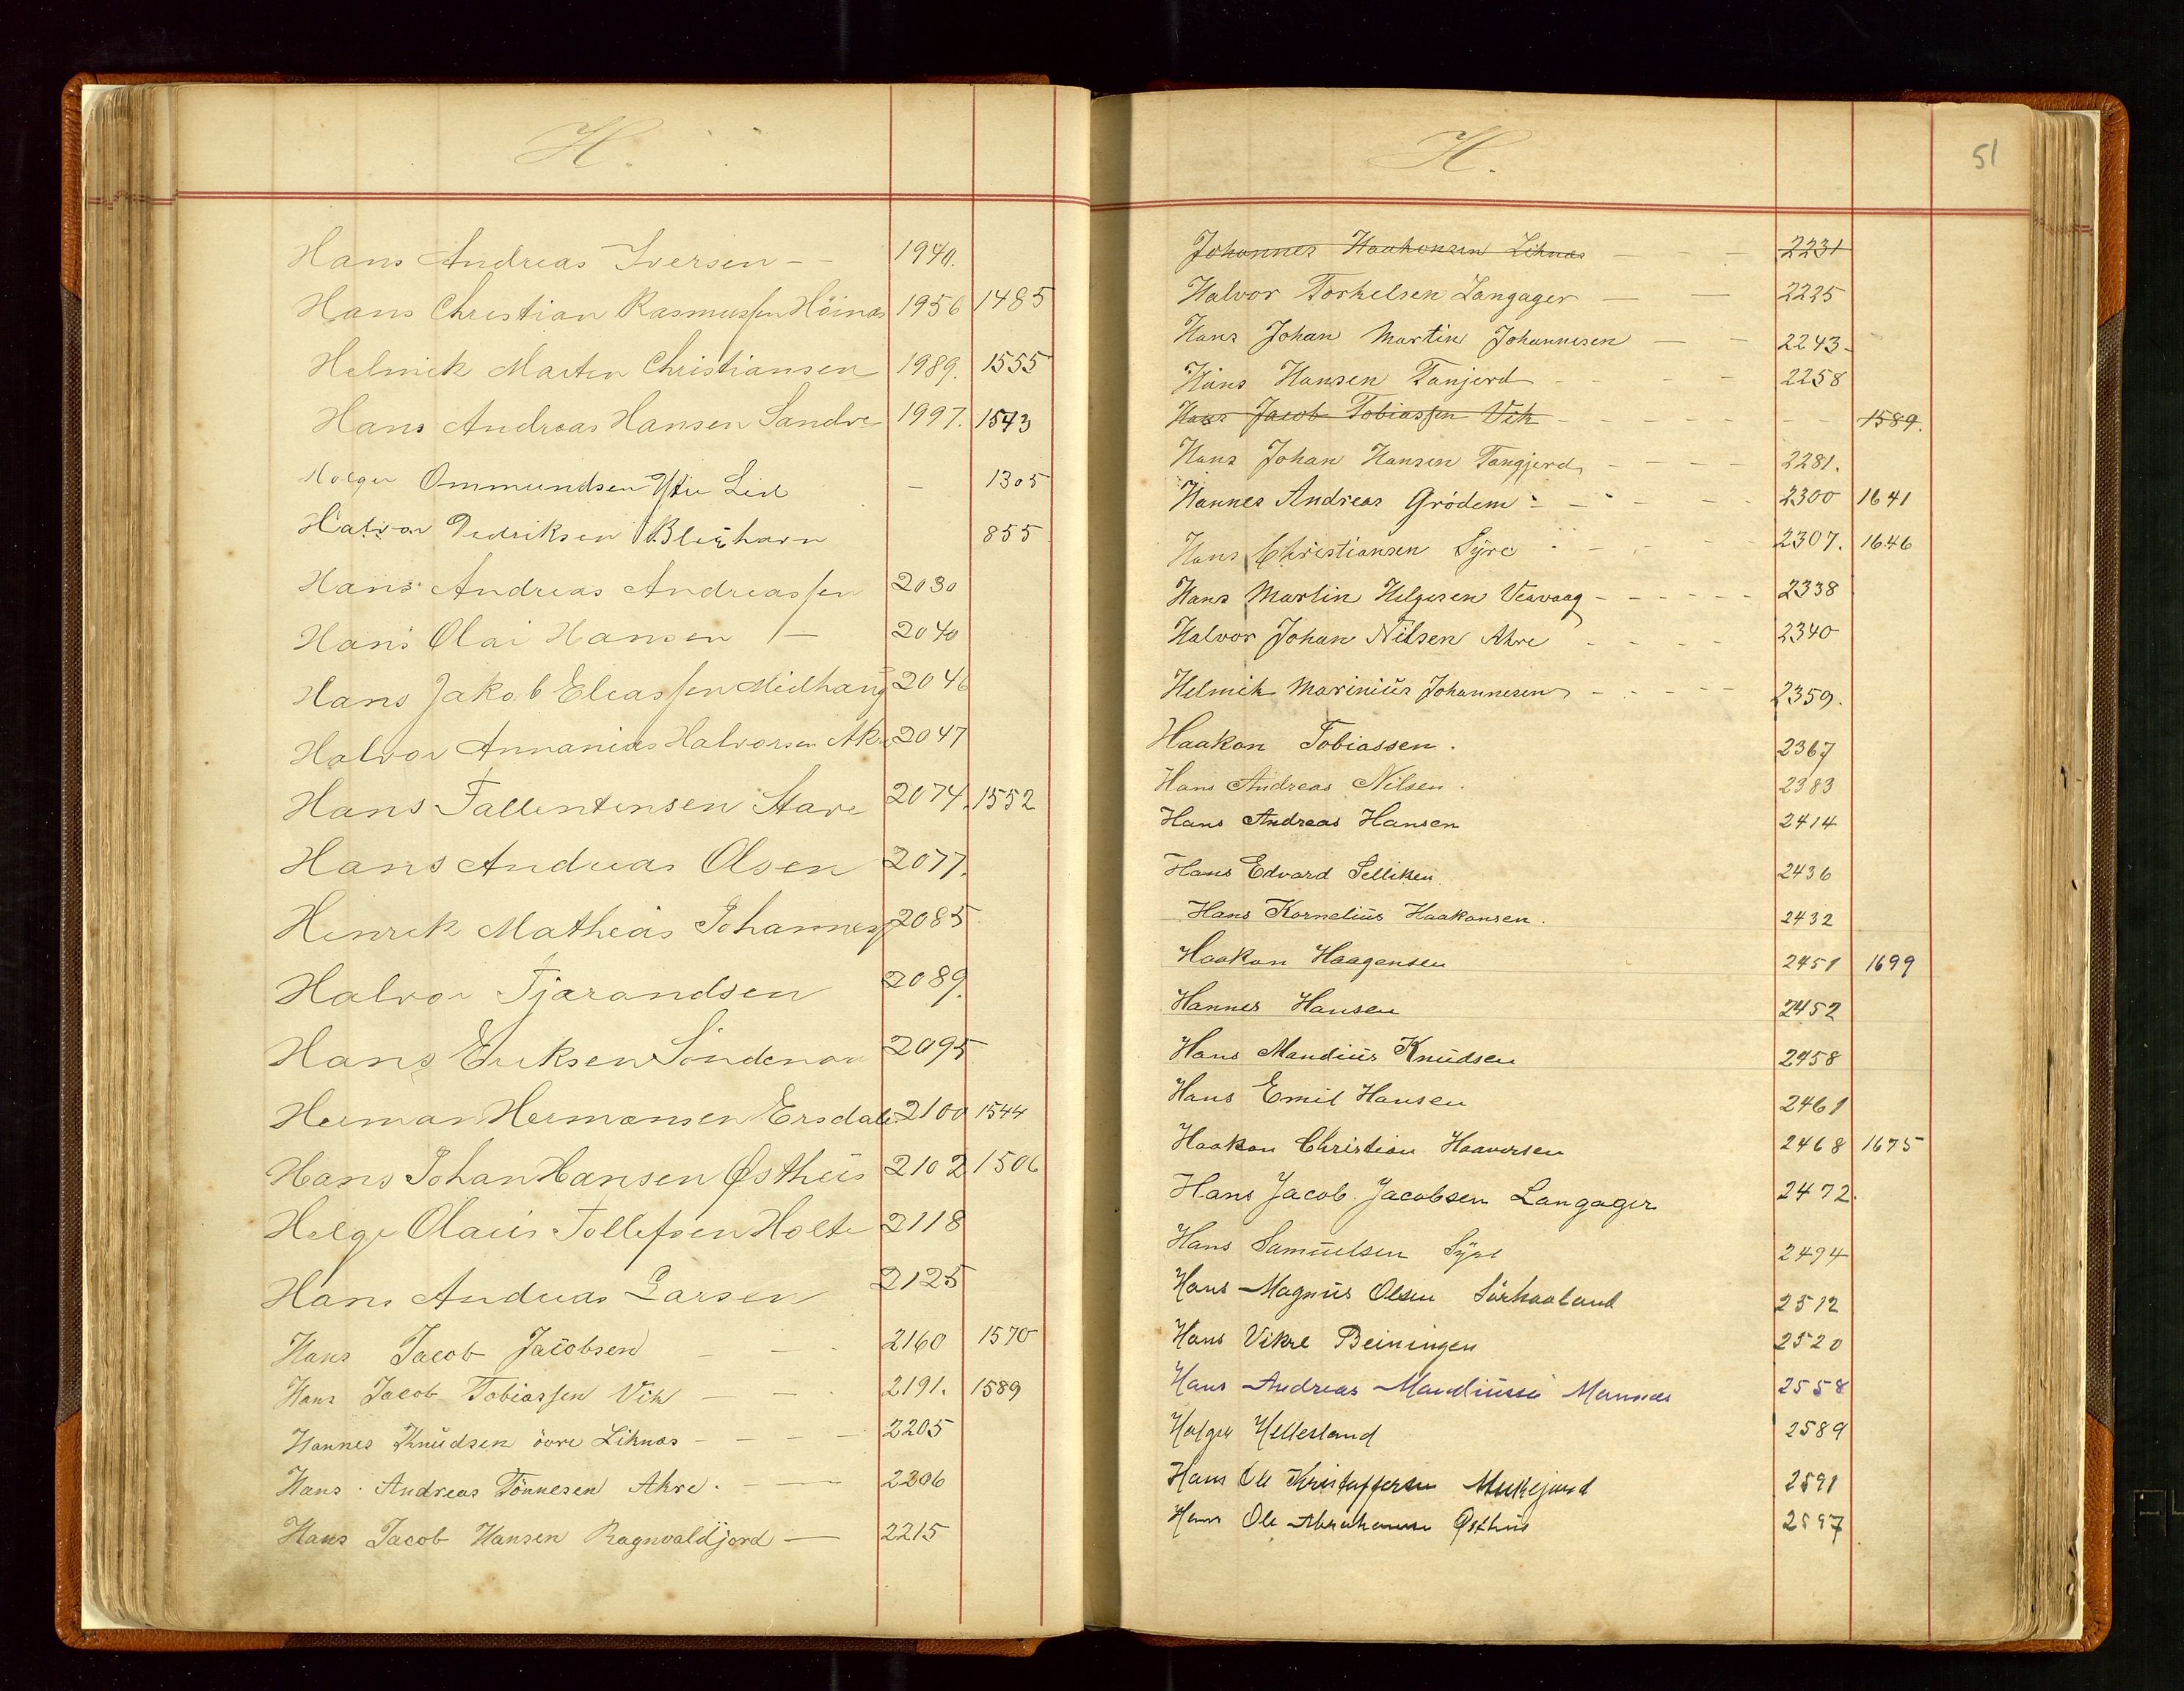 H.
Hans Andreas Iversen - - 1940.
Hans Christian Rasmussen Höinæs 1956 1485
Helmik Martin Christiansen 1989. 1555
Hans Andreas Hansen Sandve 1997. 1543
Holger Ommundsen Ytre Lid - 1305
Halvor Pedriksen Bleihavn 855
Hans Andreas Andreassen 2030
Hans Olai Hansen - 2040
Hans Jakob Eleassen Midhaug 2046
Halvor Annanias Halvorsen Ak 2047
Hans Fallentensen Stave 2074. 1552
Hans Andreas Olsen 2077.
Henrik Mathias Johanness 2085
Halvor Tjærandsen 2089.
Hans Eriksen Söndenaa 2095
Herman Hermansen Ersdal 2100 1544
Hans Johan Hansen Østhus 2102 1506
Helge Olaus Tollefsen Holte 2118
Hans Andreas Larsen 2125
Hans Jacob Jacobsen - - 2160 1570
Hans Jacob Tobiassen Vik - - 2191. 1589
Hannes Knudsen övre Liknæs - - - - 2205
Hans Andreas Tönnesen Ahre. - - 2206
Hans Jacob Hansen Ragnvaldjord - 2215
H.
51
Johannes Haakonsen Liknæs - - - 2231
Halvor Torkelsen Langager - - 2225
Hans Johan Martin Johannesen - - 2243-
Hans Hansen Tanjerd - - - 2258
Hans Jacob Tobiassen Vik - - - - - - - 1589.
Hans Johan Hansen Tangjerd - - - - 2281.
Hannes Andreas Grödem - - - - - 2300 1641
Hans Christiansen Syre - - - - 2307. 1646
Hans Martin Helgesen Veavaag - - - - - - 2338
Halvor Johan Nilsen Ahre - - - - 2340
Helmik Marinius Johannesen - - - - - 2359.
Haakon Tobiassen. 2367
Hans Andreas Nilsen. 2383
Hans Andreas Hansen 2414
Hans Edvard Selliken. 2436
Hans Kornelius Haakonsen. 2432
Haakon Haagensen 2451 1699
Hannes Hansen 2452
Hans Mandius Knudsen 2458
Hans Emil Hansen 2461
Haakon Christian Haaversen 2468 1675
Hans Jacob Jacobsen Langager 2472.
Hans Samuelsen Syre 2494
Hans Magnus Olsen Sörhaaland 2512
Hans Vikre Beiningen 2520
Hans Andreas Mandiussen Mannæs 2558
Holger Hellesland 2589
Hans Ole Kristoffersen 2591
Hans Ole Abrahamsen Østhus 2597